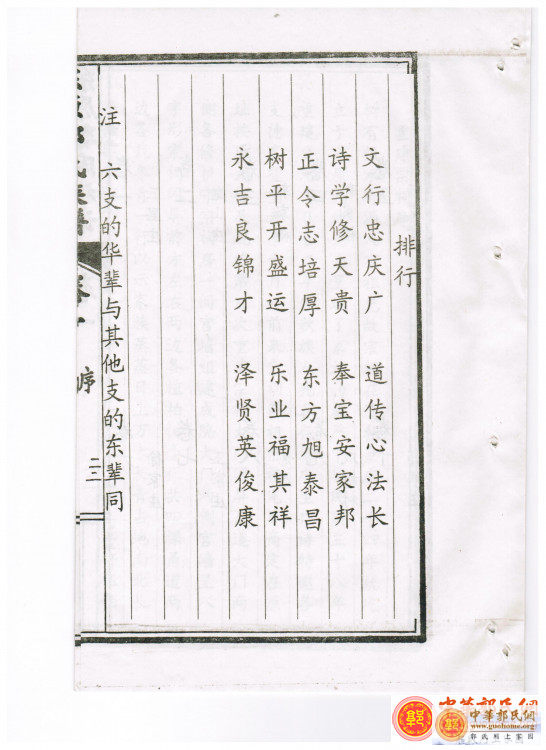 排行
文行忠庆广 道传心法长
诗学修天贵 奉宝安家邦
正令志培厚 东方旭泰昌
树平开盛运 乐业福其祥
永吉良锦才 泽贤英俊康
注 六支的华辈与其他支的东辈同
氏族谱
序
二二
中華郭氏網
www.guohome.org
郭氏网上家园